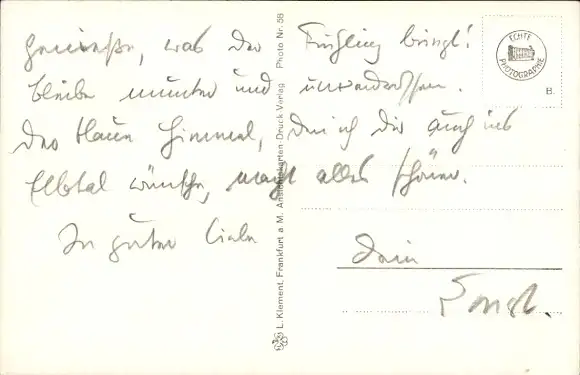 Geniesse, was der Frühling bringt!
bleibe munter und unverdrossen.
Der blaue Himmel, den ich Dir auch ins
Elbtal wünsche, macht alles schöner.
In guter Liebe
Dein
Ernst.
ECHTE
PHOTOGRAPHIE
B.
L. Klement, Frankfurt a. M. Ansichtskarten-Druck-Verlag Photo Nr. 58